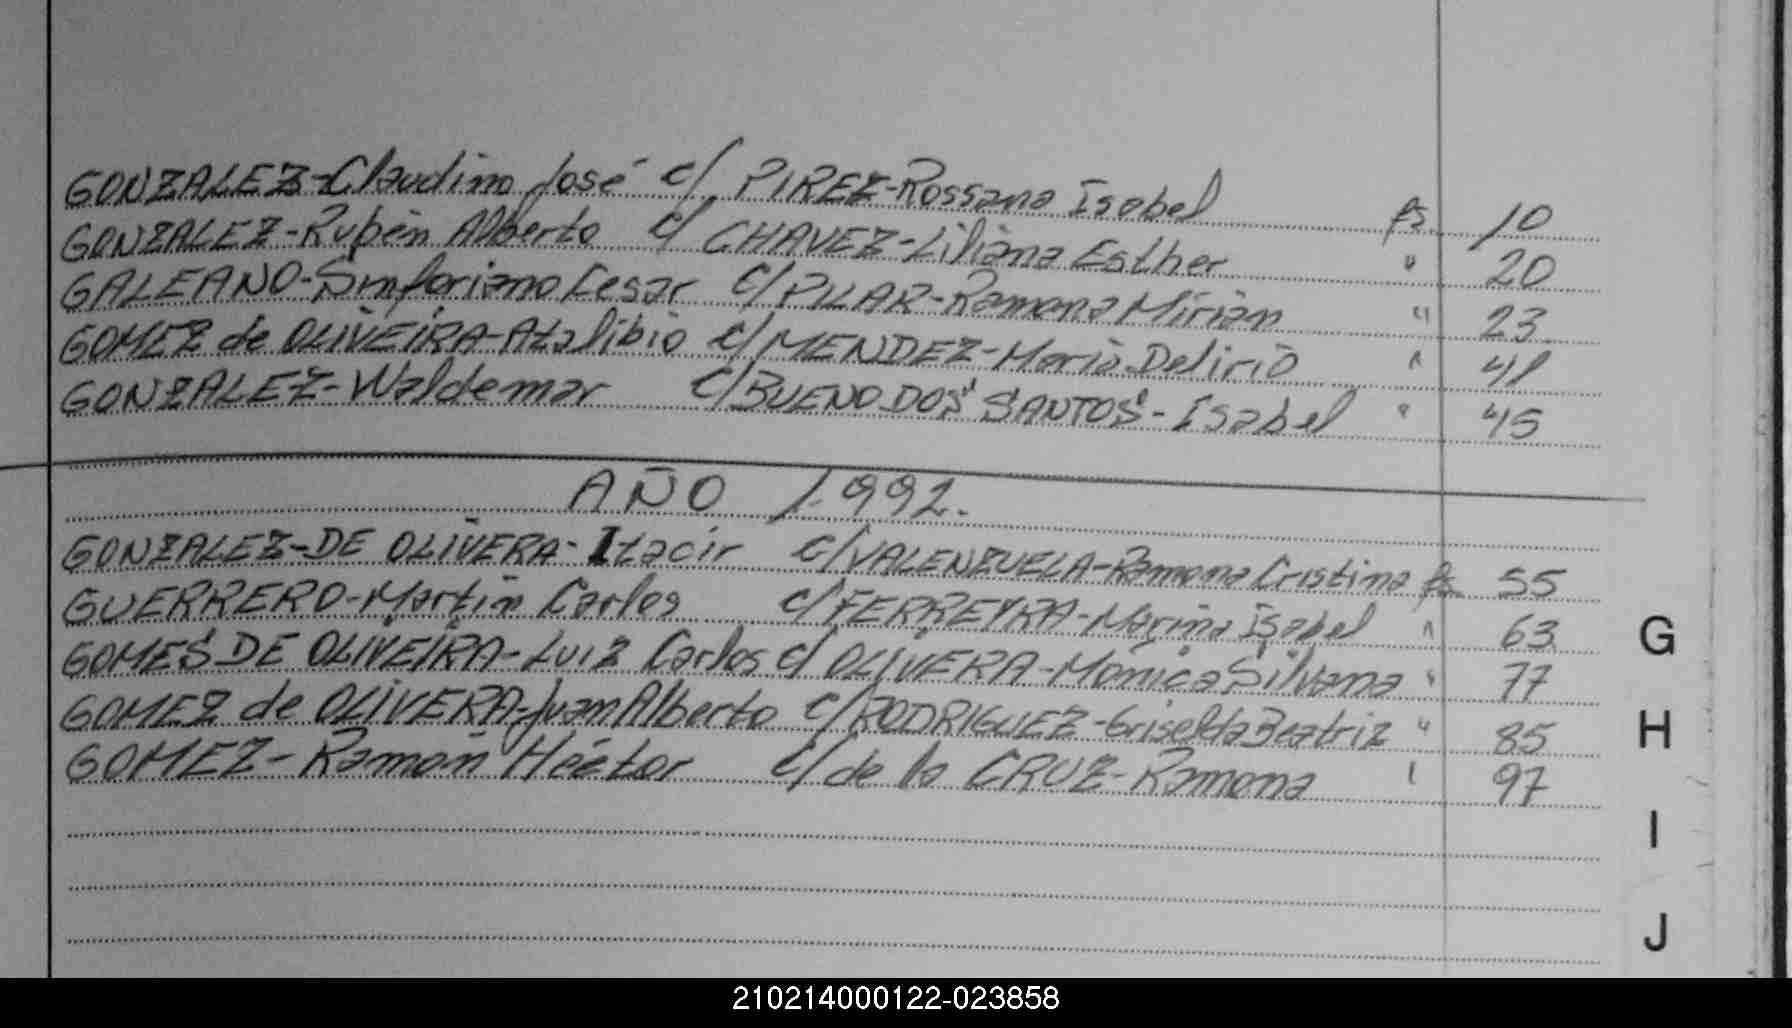 GONZALEZ-Claudino José c/ PIREZ-Rossana Isabel fs. 10
GONZALEZ-Rubén Alberto c/ CHAVEZ-Liliana Esther " 20
GALEANO-Sinforiano Cesar c/ PILAR-Ramona Mirian " 23
GOMEZ de OLIVEIRA-Atalibio c/ MENDEZ-Maria Delirio " 41
GONZALEZ-Waldemar c/ BUENO DOS SANTOS-Isabel " 45
AÑO 1.992.
GONZALEZ-DE OLIVERA-Itacir c/ VALENZUELA-Ramona Cristina fs. 55
GUERRERO-Martín Carlos c/ FERREYRA-Marina Isabel " 63
GOMES DE OLIVEIRA-Luiz Carlos c/ OLIVERA-Mónica Silvana " 77
GOMEZ de OLIVERA-Juan Alberto c/ RODRIGUEZ-Griselda Beatriz " 85
GOMEZ-Ramón Héctor c/ de la CRUZ-Ramona " 97
G
H
I
J
210214000122-023858